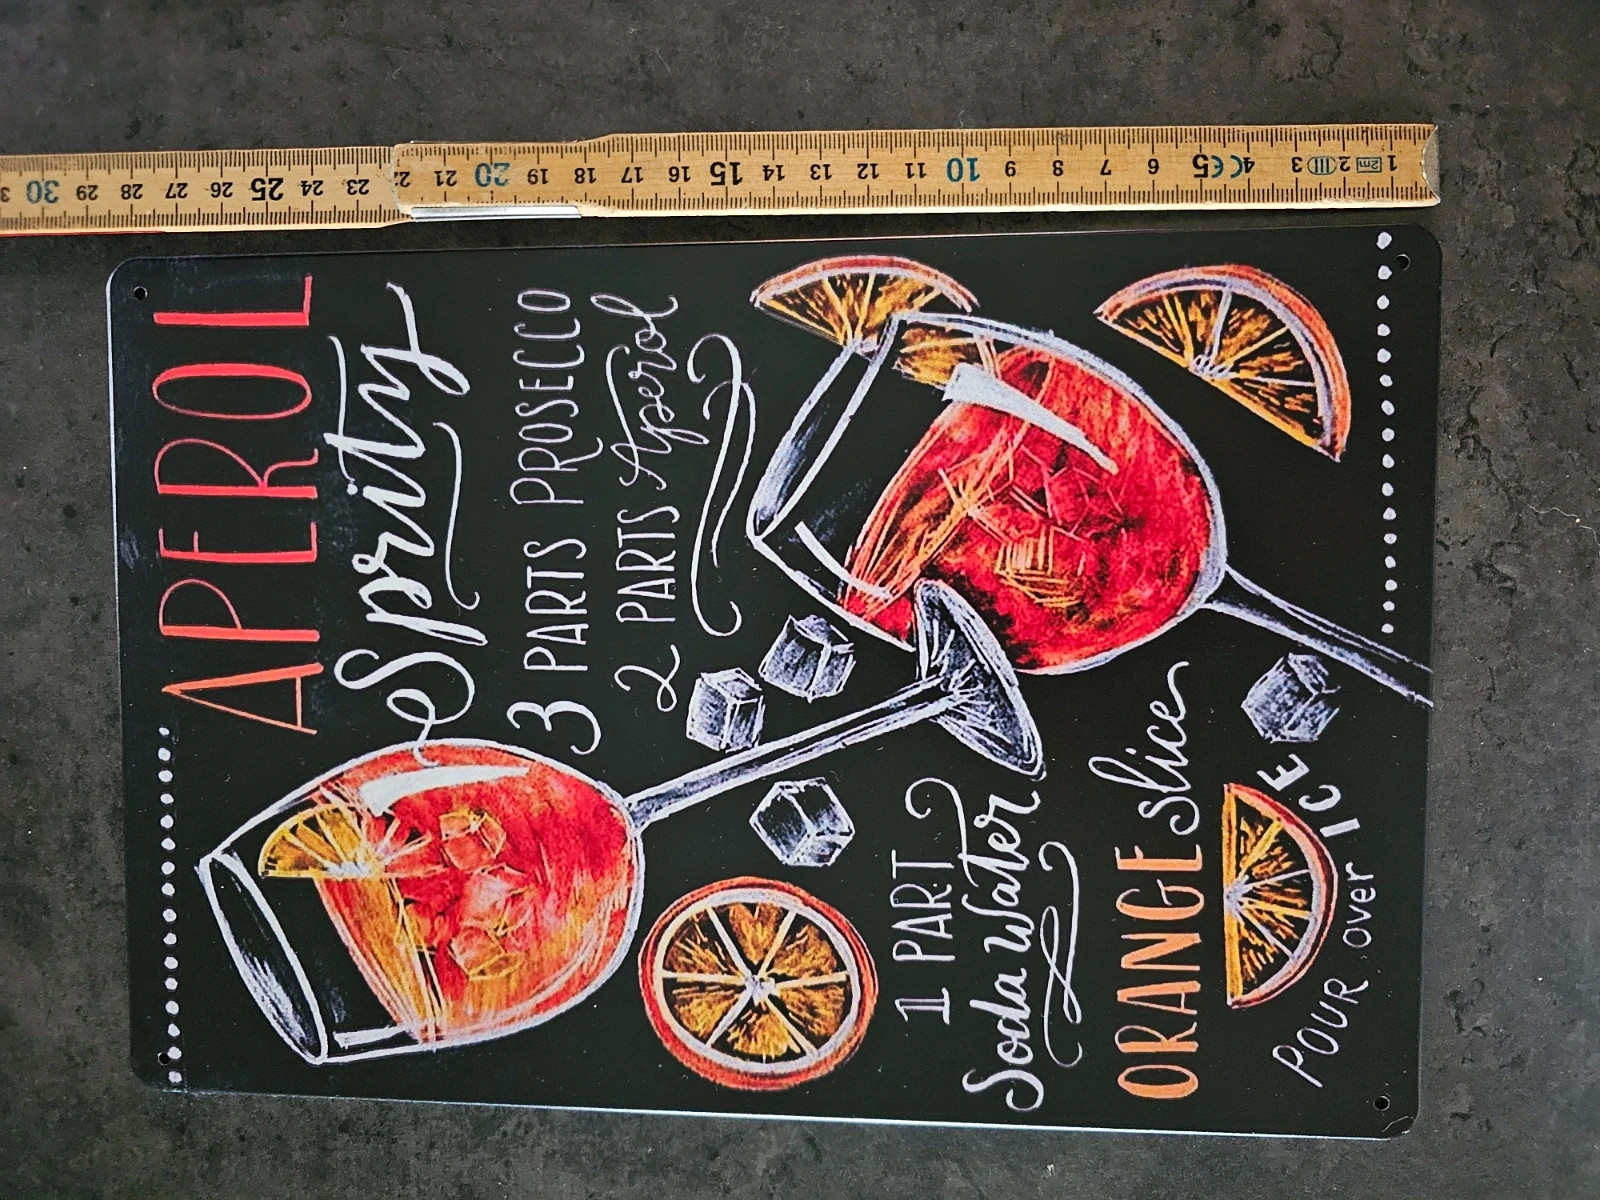 1 2m 2 III 3 4 CE 5 6 7 8 9 10 11 12 13 14 15 16 17 18 19 20 21 22 23 24 25 26 27 28 29 30
APEROL
Spritz
3 PARTS PROSECCO
2 PARTS Aperol
1 PART
Soda Water
ORANGE slice
POUR over ICE